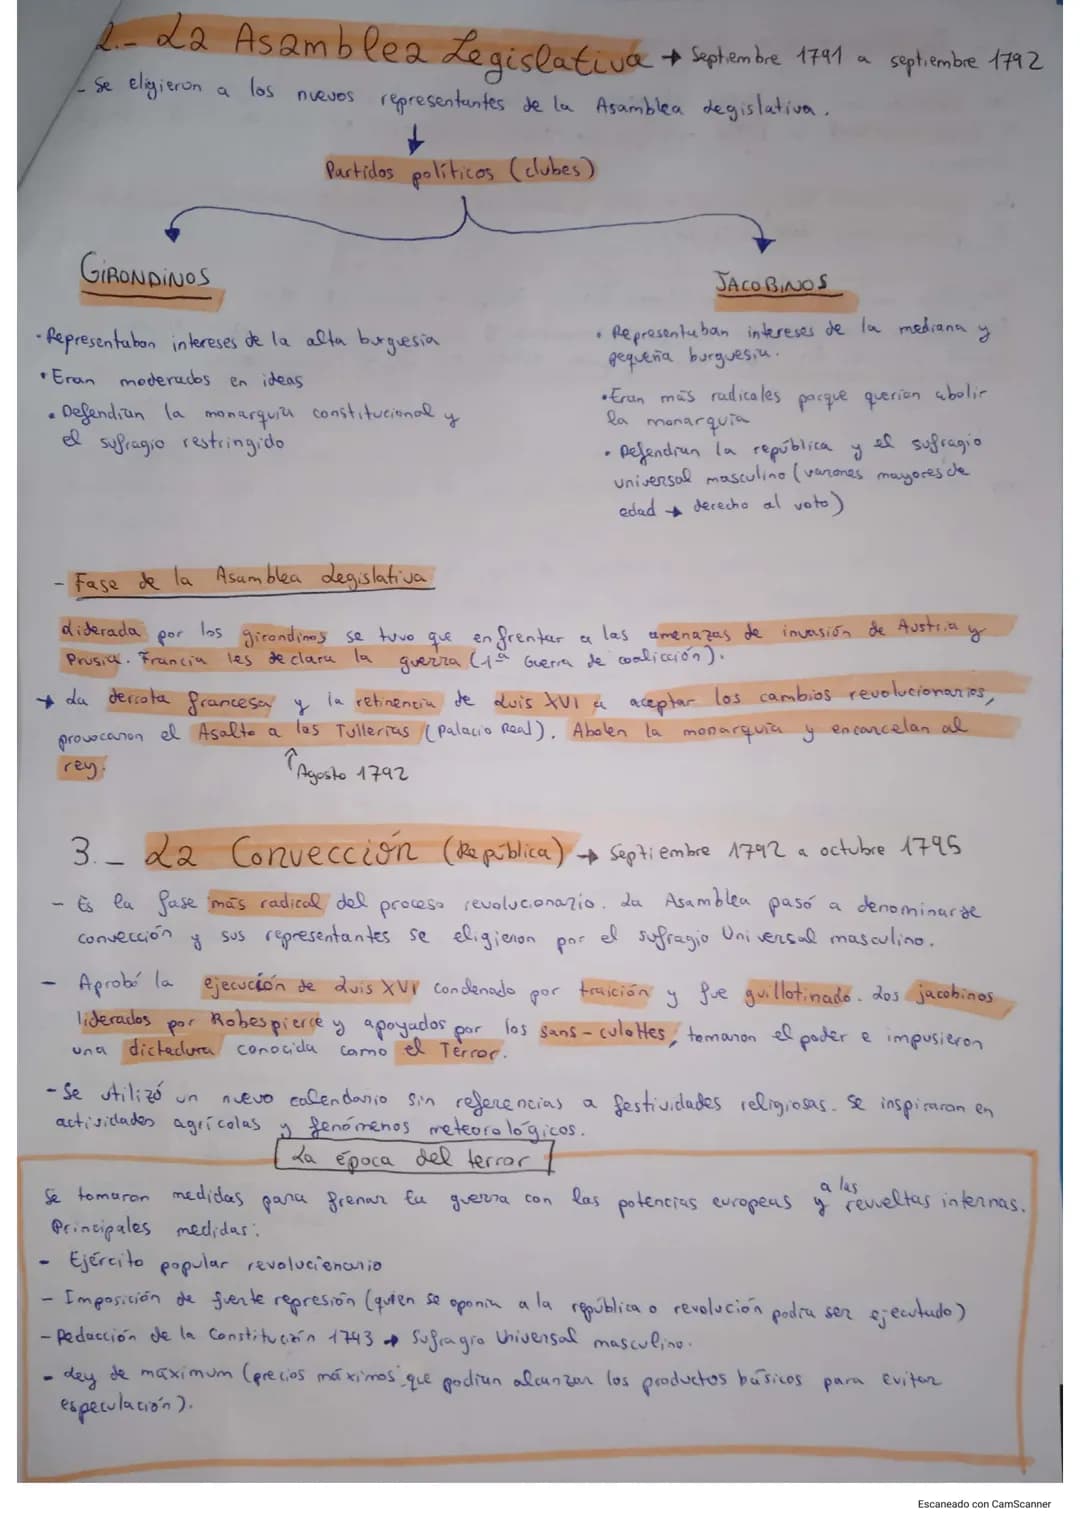 2.- La Asamblea Legislativa → Septiembre 1791 a septiembre 1792
- Se eligieron a los nuevos representantes de la Asamblea Legislativa.
↓
Partidos políticos (clubes)
GIRONDINOS
• Representaban intereses de la alta burguesía
• Eran moderados en ideas
• Defendían la monarquía constitucional y
el sufragio restringido
JACOBINOS
• Representaban intereses de la mediana y
pequeña burguesía.
• Eran más radicales porque querían abolir
la monarquía
• Defendían la república y el sufragio
universal masculino (varones mayores de
edad → derecho al voto)
- Fase de la Asamblea Legislativa
Liderada por los girondinos se tuvo que enfrentar a las amenazas de invasión de Austria y
Prusia. Francia les declara la guerra (1ª Guerra de coalicción).
→ La derrota francesa y la retinencia de Luis XVI a aceptar los cambios revolucionarios,
provocaron el Asalto a las Tullerías (Palacio Real). Abolen la monarquía y encarcelan al
rey.
↑ Agosto 1792
3.- La Convección (República) → Septiembre 1792 a octubre 1795
- Es la fase más radical del proceso revolucionario. La Asamblea pasó a denominarse
convección y sus representantes se eligieron por el sufragio Universal masculino.
- Aprobó la ejecución de Luis XVI condenado por traición y fue guillotinado. Los jacobinos
liderados por Robespierre y apoyados por los sans-culottes, tomaron el poder e impusieron
una dictadura conocida como el Terror.
- Se utilizó un nuevo calendario sin referencias a festividades religiosas. Se inspiraron en
actividades agrícolas y fenómenos meteorológicos.
La época del terror
Se tomaron medidas para frenar la guerra con las potencias europeas y a las revueltas internas.
Principales medidas:
- Ejército popular revolucionario
- Imposición de fuerte represión (quien se oponía a la república o revolución podía ser ejecutado)
- Redacción de la Constitución 1743 → Sufragio Universal masculino.
- Ley de máximum (precios máximos que podían alcanzar los productos básicos para evitar
especulación).
Escaneado con CamScanner